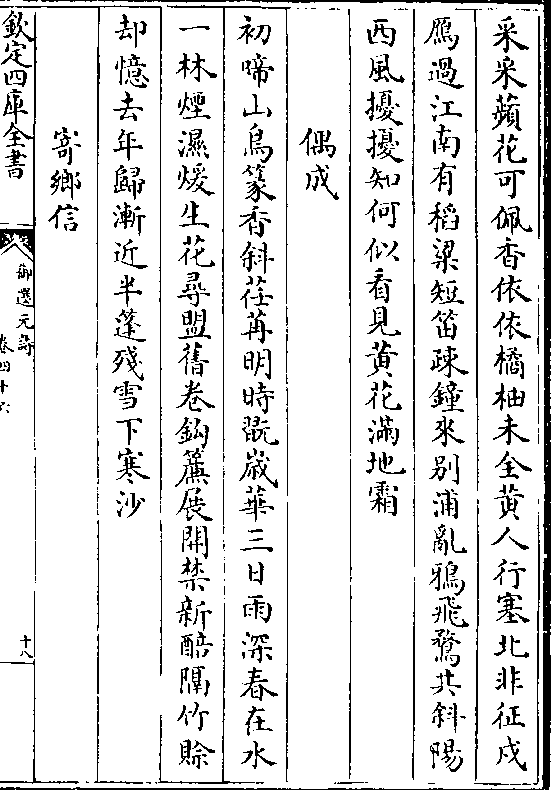 采采蘋花可佩香依依橘柚未全黄人行塞北非征戍
鴈過江南有稻粱短笛疎鐘來别浦亂鴉飛鶩共斜陽
西風擾擾知何似看見黄花滿地霜
偶成
初啼山鳥篆香斜荏苒明時翫歳華三日雨深春在水
一林煙濕煖生花尋盟舊卷鈎簾展開禁新醅隔竹賒
却憶去年歸漸近半蓬殘雪下寒沙
寄鄉信
欽定四庫全書
御選元詩
卷四十六
十八